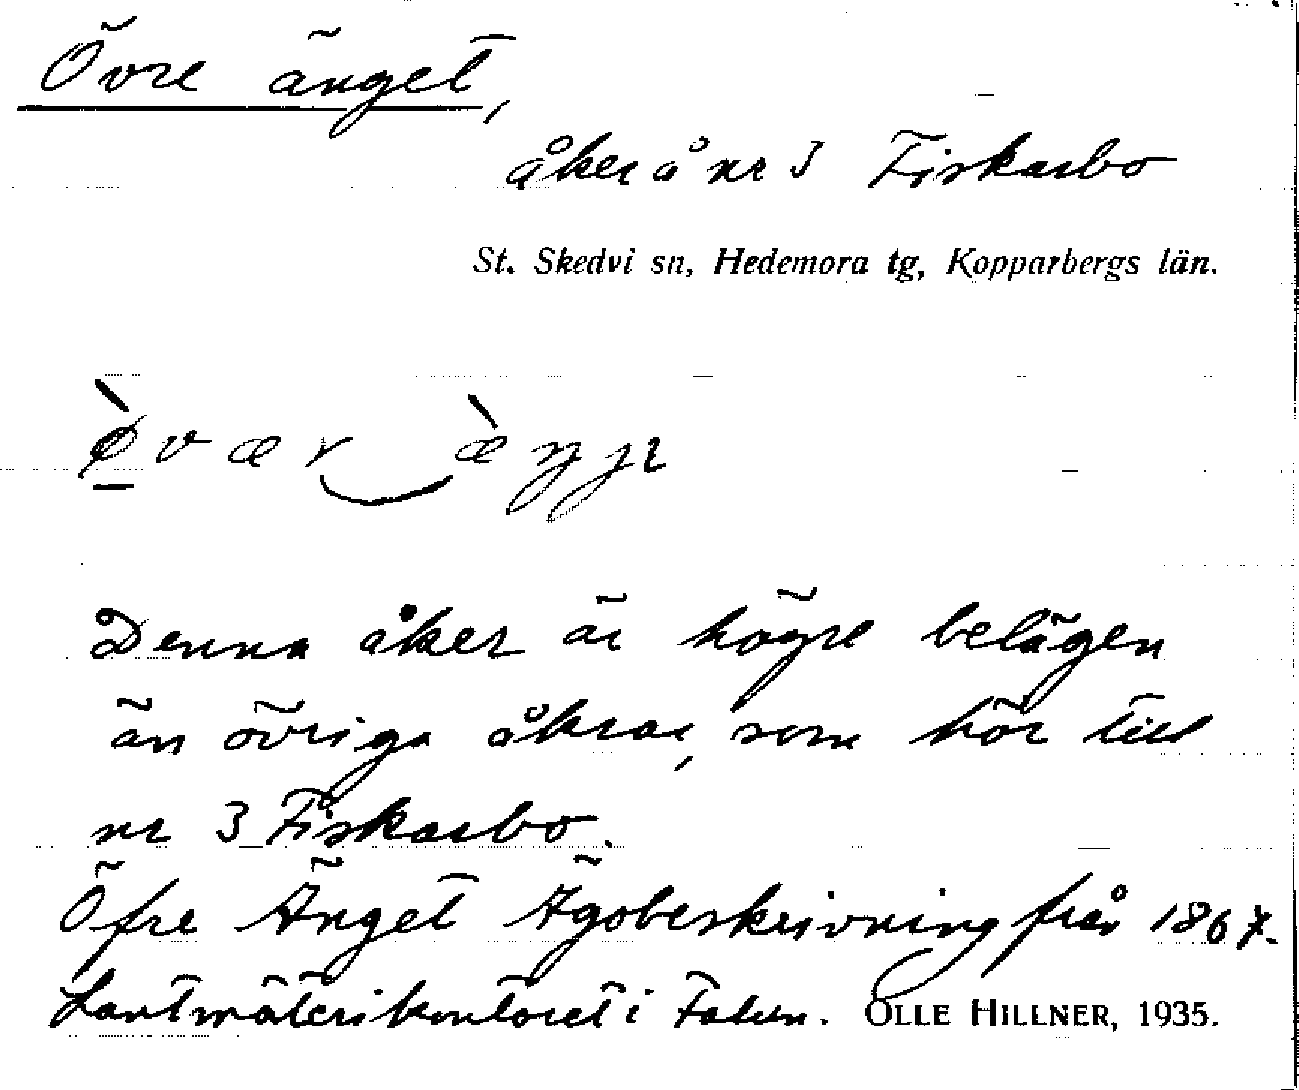 Övre änget,
åker å nr 3 Fiskarbo
St. Skedvi sn, Hedemora tg, Kopparbergs län.
Denna åker är högre belägen
än övriga åkrar, som hör till
nr 3 Fiskarbo.
Öfre Änget Ägobeskrivning från 1867.
Lantmäterikontoret i Falun. OLLE HILLNER, 1935.